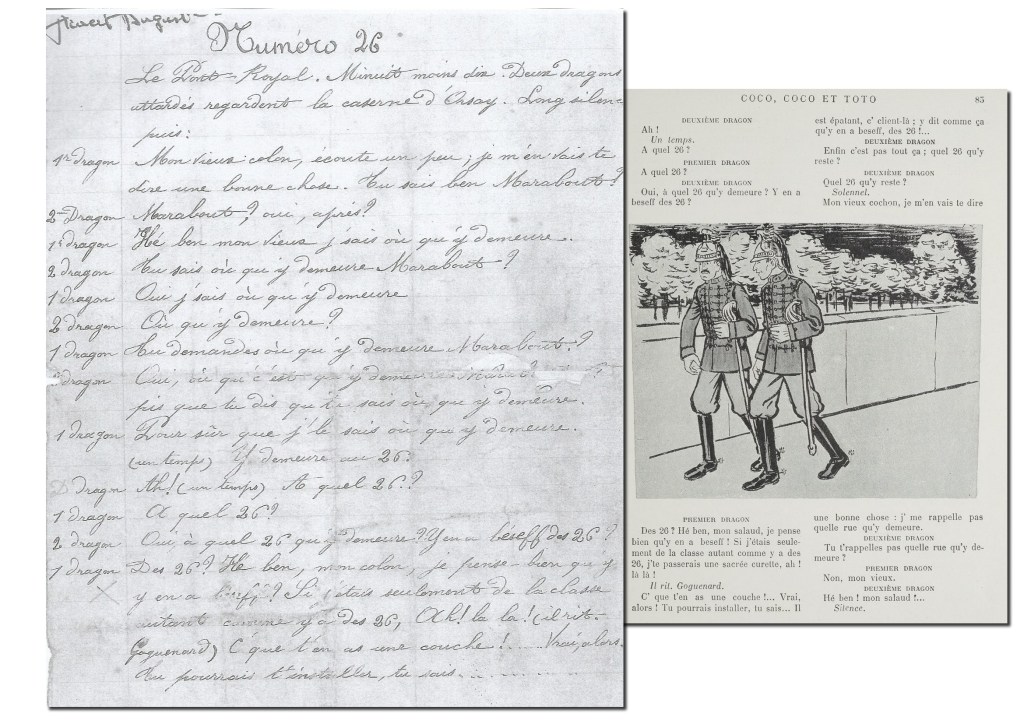 Numéro 26
Le Pont-Royal. Minuit moins dix. Deux dragons
attardés regardent la caserne d'Orsay. Long silen-
puis:
1er dragon Mon vieux colon, écoute un peu; je m'en vais te
dire une bonne chose. Tu sais ben Marabout?
2me Dragon Marabout?, oui, après?
1r dragon Hé ben mon vieux j'sais où qu'y demeure.
2 dragon Tu sais où qu'y demeure Marabout?
1 dragon Oui j'sais où qu'y demeure
2 dragon Où qu'y demeure?
1 dragon Tu demandes où qu'y demeure Marabout?
dragon Oui, où qu'c'est qu'y deme
pis que tu dis qu' tu sais où que y demeure.
1 dragon Pour sûr que j'le sais où qu'y demeure.
(un temps) Y demeure au 26.
D dragon Ah! (un temps) A quel 26.?
1 dragon A quel 26?
2 dragon Oui à quel 26 qu'y demeure? Y en a béseff des 26?
1 dragon Des 26? Hé ben, mon colon, je pense bien qu'y
y en a Si j'étais seulement de la classe
autant comme y a des 26, Ah! la la! (il rit.
Goguenard) C'que t'en as une couche!..... Vrai, alors.
Tu pourrais t'installer, tu sais..........
COCO, COCO ET TOTO 85
DEUXIÈME DRAGON
Ah !
Un temps.
A quel 26 ?
PREMIER DRAGON
A quel 26 ?
DEUXIÈME DRAGON
Oui, à quel 26 qu'y demeure ? Y en a
beseff des 26 ?
est épatant, c' client-là ; y dit comme ça
qu'y en a beseff, des 26 !...
DEUXIÈME DRAGON
Enfin c'est pas tout ça ; quel 26 qu'y
reste ?
DEUXIÈME DRAGON
Quel 26 qu'y reste ?
Solennel.
Mon vieux cochon, je m'en vais te dire
PREMIER DRAGON
Des 26 ? Hé ben, mon salaud, je pense
bien qu'y en a beseff ! Si j'étais seule-
ment de la classe autant comme y a des
26, j'te passerais une sacrée curette, ah !
là là !
Il rit. Goguenard.
C' que t'en as une couche !... Vrai,
alors ! Tu pourrais installer, tu sais... Il
une bonne chose : j' me rappelle pas
quelle rue qu'y demeure.
DEUXIÈME DRAGON
Tu t'rappelles pas quelle rue qu'y de-
meure ?
PREMIER DRAGON
Non, mon vieux.
DEUXIÈME DRAGON
Hé ben ! mon salaud !...
Silence.